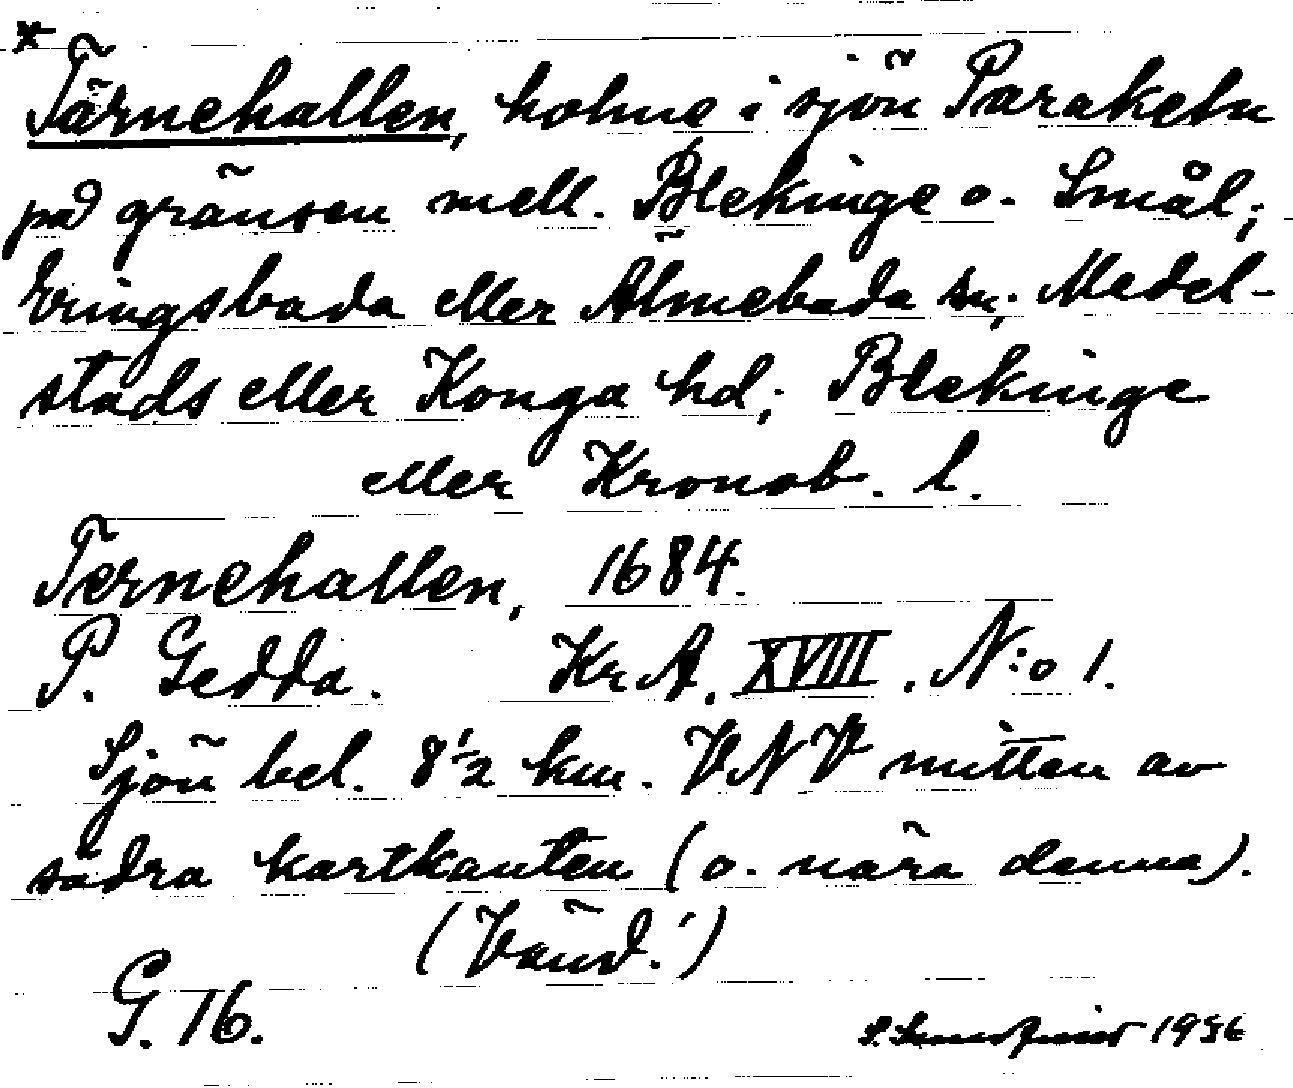 * Tärnehallen, holme i sjön Paraketu
på gränsen mell. Blekinge o. Smål;
Eringsboda eller Älmeboda sn; Medel-
stads eller Konga hd; Blekinge
eller Kronob. l.
Ternehallen, 1684.
P. Gedda. Kr A. XVIII. N:o 1.
Sjön bel. 8½ km. VNV mitten av
södra kartkanten (o. nära denna).
(Vänd!)
G. 16.
1956